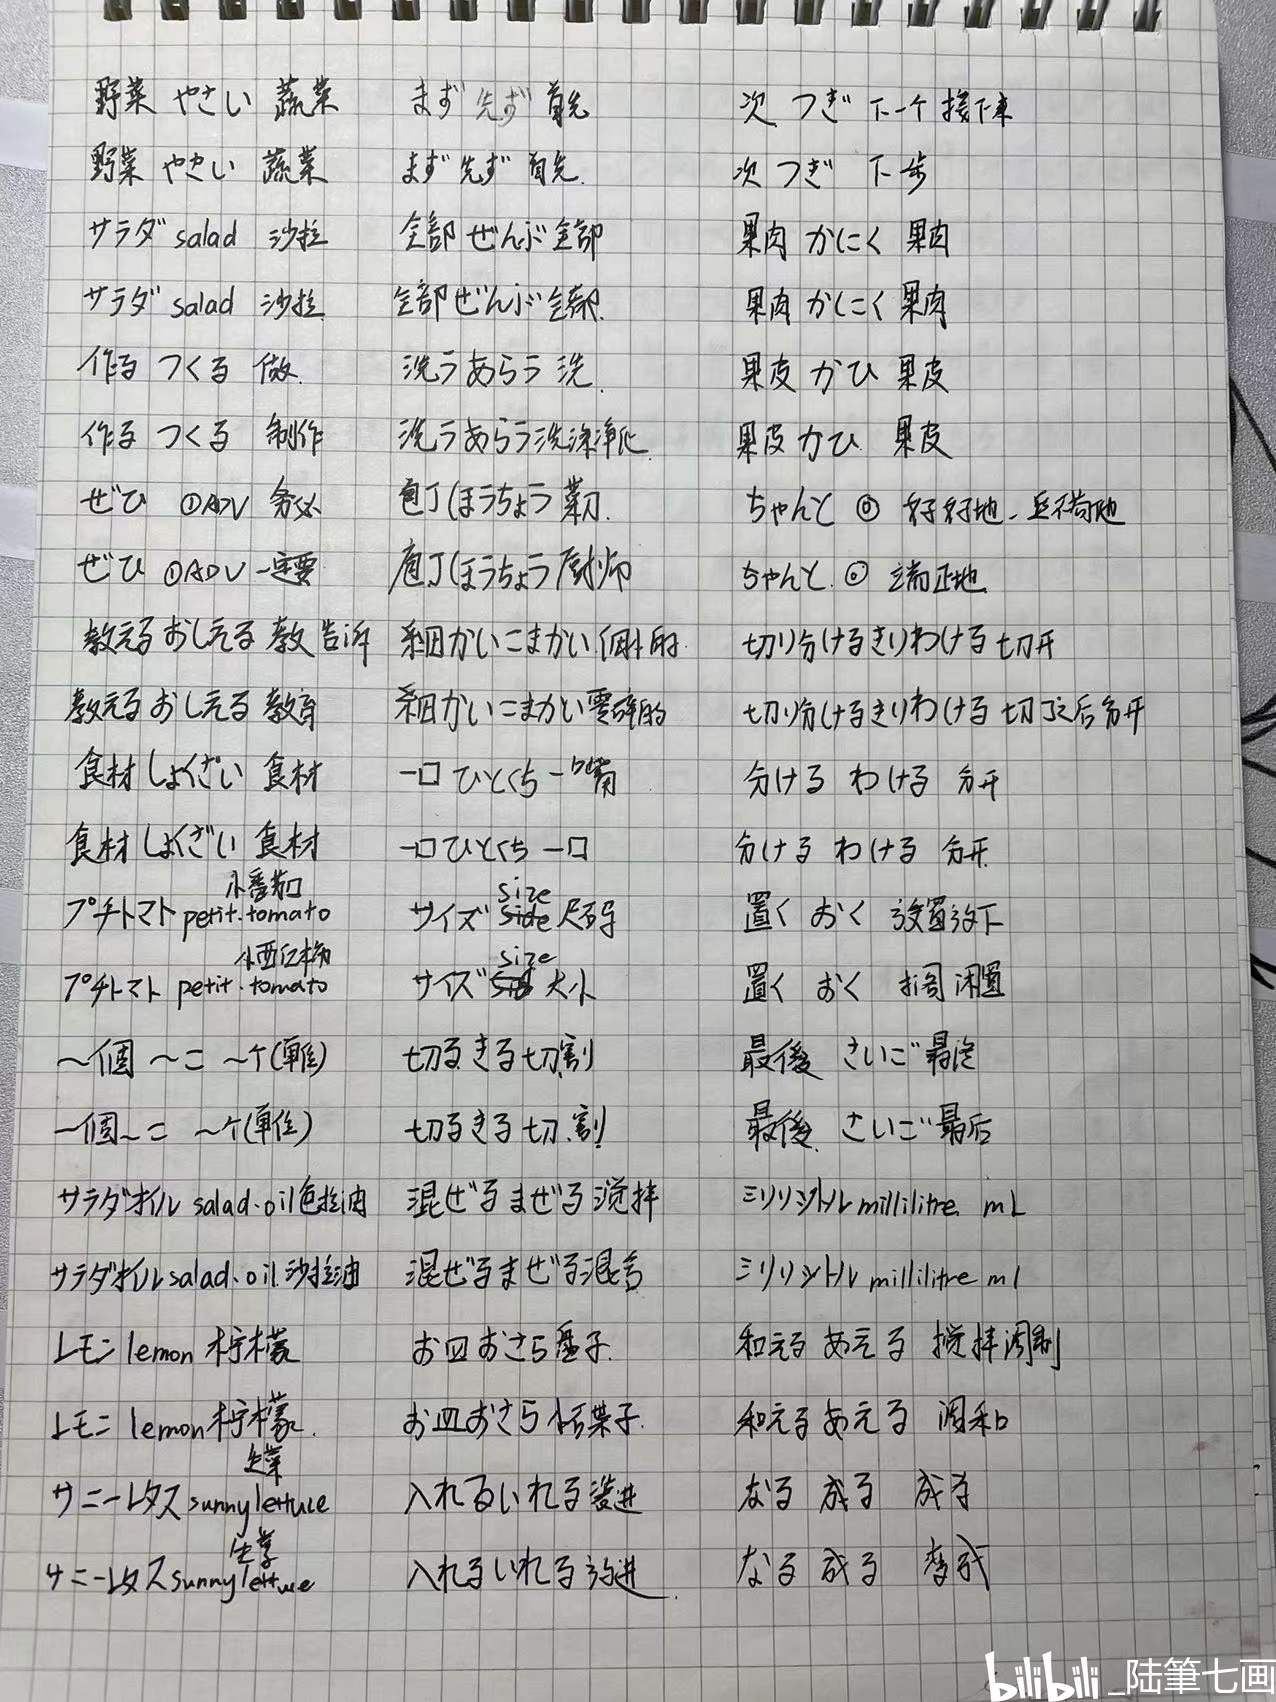 野菜 やさい 蔬菜
野菜 やさい 蔬菜
サラダ salad 沙拉
サラダ salad 沙拉
作る つくる 做
作る つくる 制作
ぜひ ①ADV 务必
ぜひ ①ADV 一定要
教える おしえる 教 告诉
教える おしえる 教育
食材 しょくざい 食材
食材 しょくざい 食材
小番茄
プチトマト petit.tomato
小西红柿
プチトマト petit.tomato
～個 ～こ ～个(單位)
～個 ～こ ～个(單位)
サラダオイル salad.oil 色拉油
サラダオイル salad.oil 沙拉油
レモン lemon 柠檬
レモン lemon 柠檬
生菜
サニーレタス sunny lettuce
生菜
サニーレタス sunny lettuce
まず 先ず 首先
まず 先ず 首先
全部 ぜんぶ 全部
全部 ぜんぶ 全部
洗う あらう 洗
洗う あらう 洗涤净化
包丁 ほうちょう 菜刀
庖丁 ほうちょう 厨师
細かい こまかい 细小的
細かい こまかい 零碎的
一口 ひとくち 一嘴
一口 ひとくち 一口
size
サイズ side 尺码
size
サイズ 大小
切る きる 切割
切る きる 切.割
混ぜる まぜる 搅拌
混ぜる まぜる 混合
お皿 おさら 盘子
お皿 おさら 小菜子
入れる いれる 装进
入れる いれる 放进
次 つぎ 下一个 接下来
次 つぎ 下一步
果肉 かにく 果肉
果肉 かにく 果肉
果皮 かひ 果皮
果皮 かひ 果皮
ちゃんと ◎ 好好地、一丝不苟地
ちゃんと ◎ 端正地
切り分ける きりわける 切开
切り分ける きりわける 切了之后分开
分ける わける 分开
分ける わける 分开
置く おく 放置放下
置く おく 搁 闲置
最後 さいご 最终
最後 さいご 最后
ミリリットル millilitre mL
ミリリットル millilitre ml
和える あえる 搅拌调制
和える あえる 调和
なる 成る 成为
なる 成る 变成
bilibili_陆筆七画